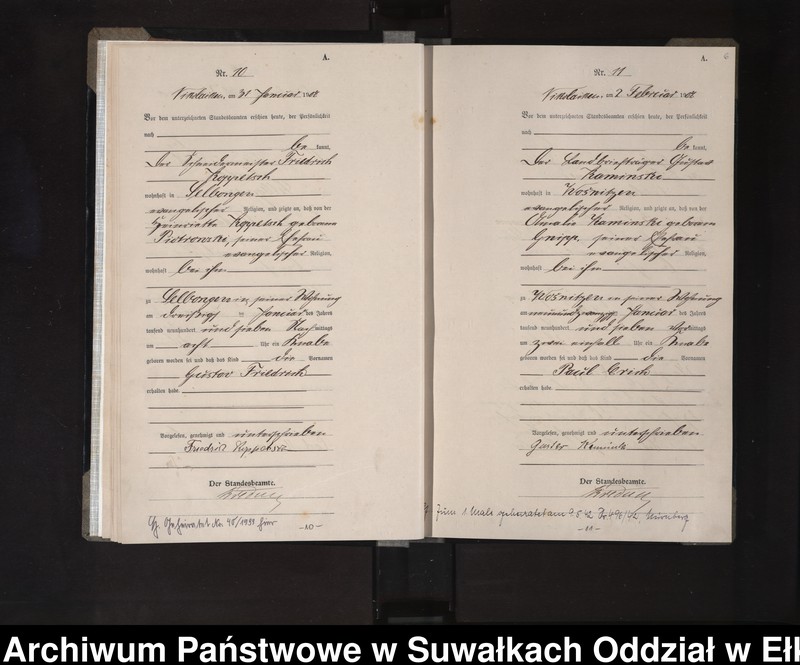 A.
Nr. 10
Nikolaiken, am 31 Januar 1908.
Vor dem unterzeichneten Standesbeamten erschien heute, der Persönlichkeit
nach
be kannt,
Der Schneidermeister Friedrich
Koppetsch
wohnhaft in Selbongen
evangelischer Religion, und zeigte an, daß von der
Henriette Koppetsch geborene
Piotrowski, seiner Ehefrau
evangelischer Religion,
wohnhaft bei ihm
zu Selbongen in seiner Wohnung
am dreißigsten Januar des Jahres
tausend neunhundert und sieben Nachmittags
um acht Uhr ein Knabe
geboren worden sei und daß das Kind die Vornamen
Gustav Friedrich
erhalten habe.
Vorgelesen, genehmigt und unterschrieben
Friedrich
Der Standesbeamte.
-10-
A.
6
Nr. 11
Nikolaiken, am 2 Februar 1908.
Vor dem unterzeichneten Standesbeamten erschien heute, der Persönlichkeit
nach
be kannt,
Der Landbriefträger Gustav
Kaminski
wohnhaft in Kosnitzen
evangelischer Religion, und zeigte an, daß von der
Amalie Kaminski geborene
Gnipp, seiner Ehefrau
evangelischer Religion,
wohnhaft bei ihm
zu Kosnitzen in seiner Wohnung
am neunundzwanzig Januar des Jahres
tausend neunhundert und sieben mittags
um zwei einhalb Uhr ein Knabe
geboren worden sei und daß das Kind die Vornamen
Paul Erich
erhalten habe.
Vorgelesen, genehmigt und unterschrieben
Der Standesbeamte.
Zum 1. Male geheiratet am 9.5.42 Nürnberg
-11-
Archiwum Państwowe w Suwałkach Oddział w Eł